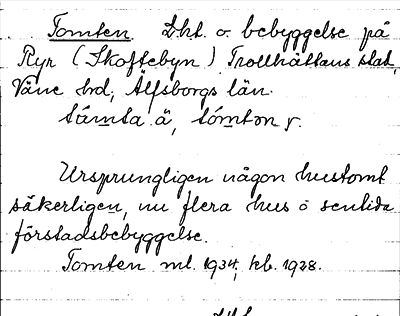 Tomten. Dht. o. bebyggelse på
Ryr (Skoftebyn) Trollhättans stad,
Väne hd, Älfsborgs län.
tám̲ta ä, tóm̲ton r.
Ursprungligen någon hustomt
säkerligen, nu flera hus o sentida
förstadsbebyggelse.
Tomten ml. 1934, kb. 1928.